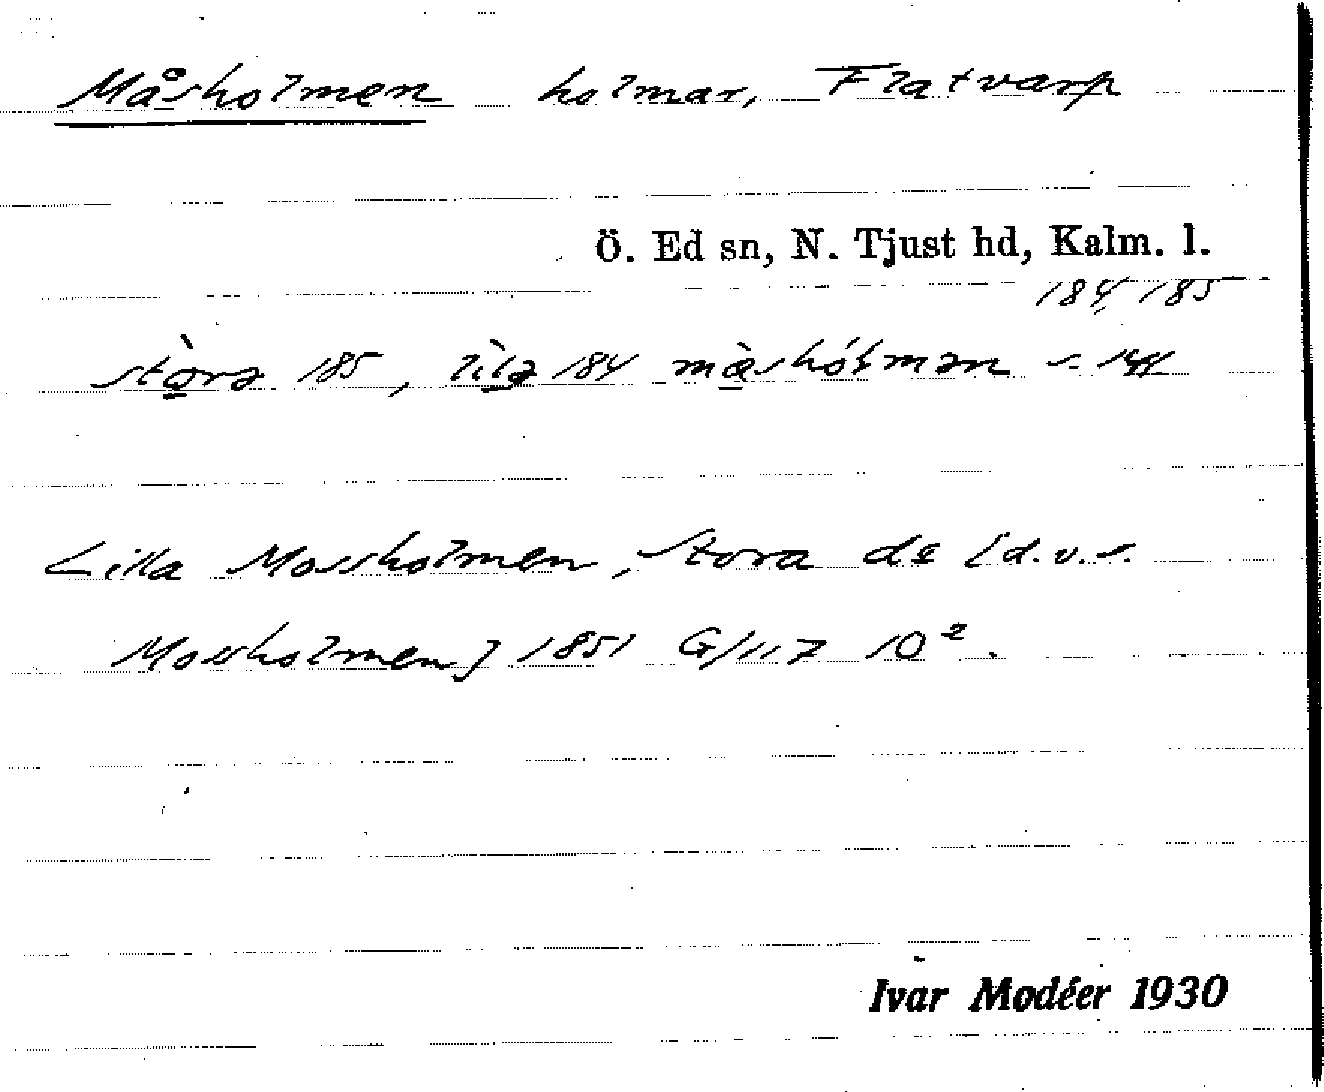 Måsholmen holmar, Flatvarp
Ö. Ed sn, N. Tjust hd, Kalm. l.
184, 185
stò̱rə 185, lìlə 184 mà̱shólmən s. 144
Lilla Mossholmen, Stora do [d.v.s.
Mossholmen] 1851 G/117 10².
Ivar Modéer 1930